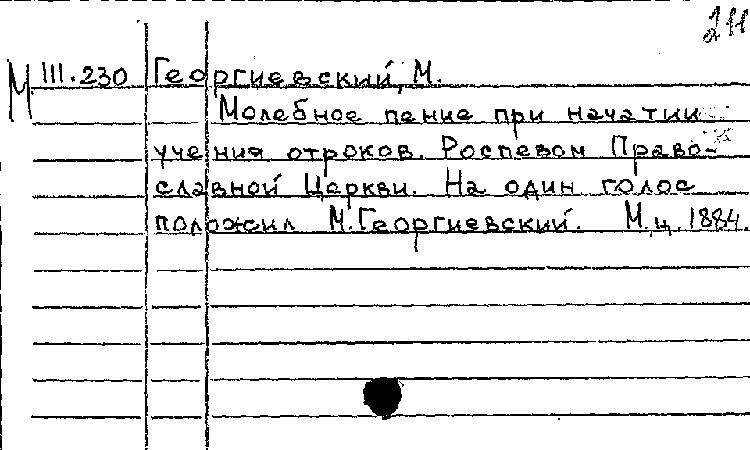 211
М III.230 Георгиевский, М.
Молебное пение при начатии
учения отроков. Роспевом Право-
славной Церкви. На один голос
положил М. Георгиевский. М,ц. 1884.